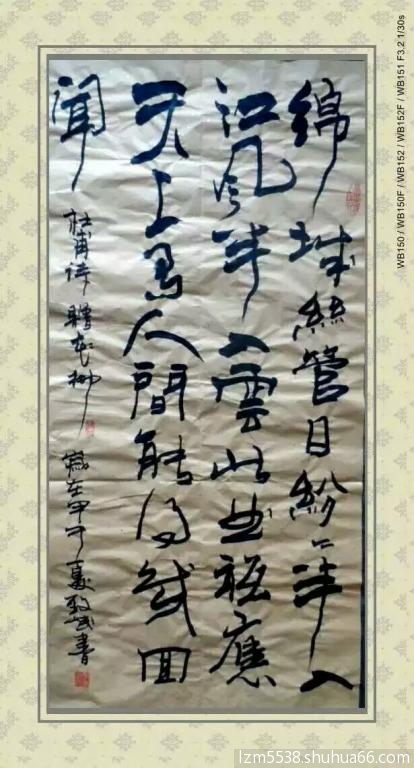 錦城絲管日紛〻半入
江风半入雲此曲祗應
天上有人間能得幾回
聞
杜甫诗 贈花卿 寫在甲午夏 書
WB150 / WB150F / WB152 / WB152F / WB151 F3.2 1/30s
lzm5538.shuhua66.com